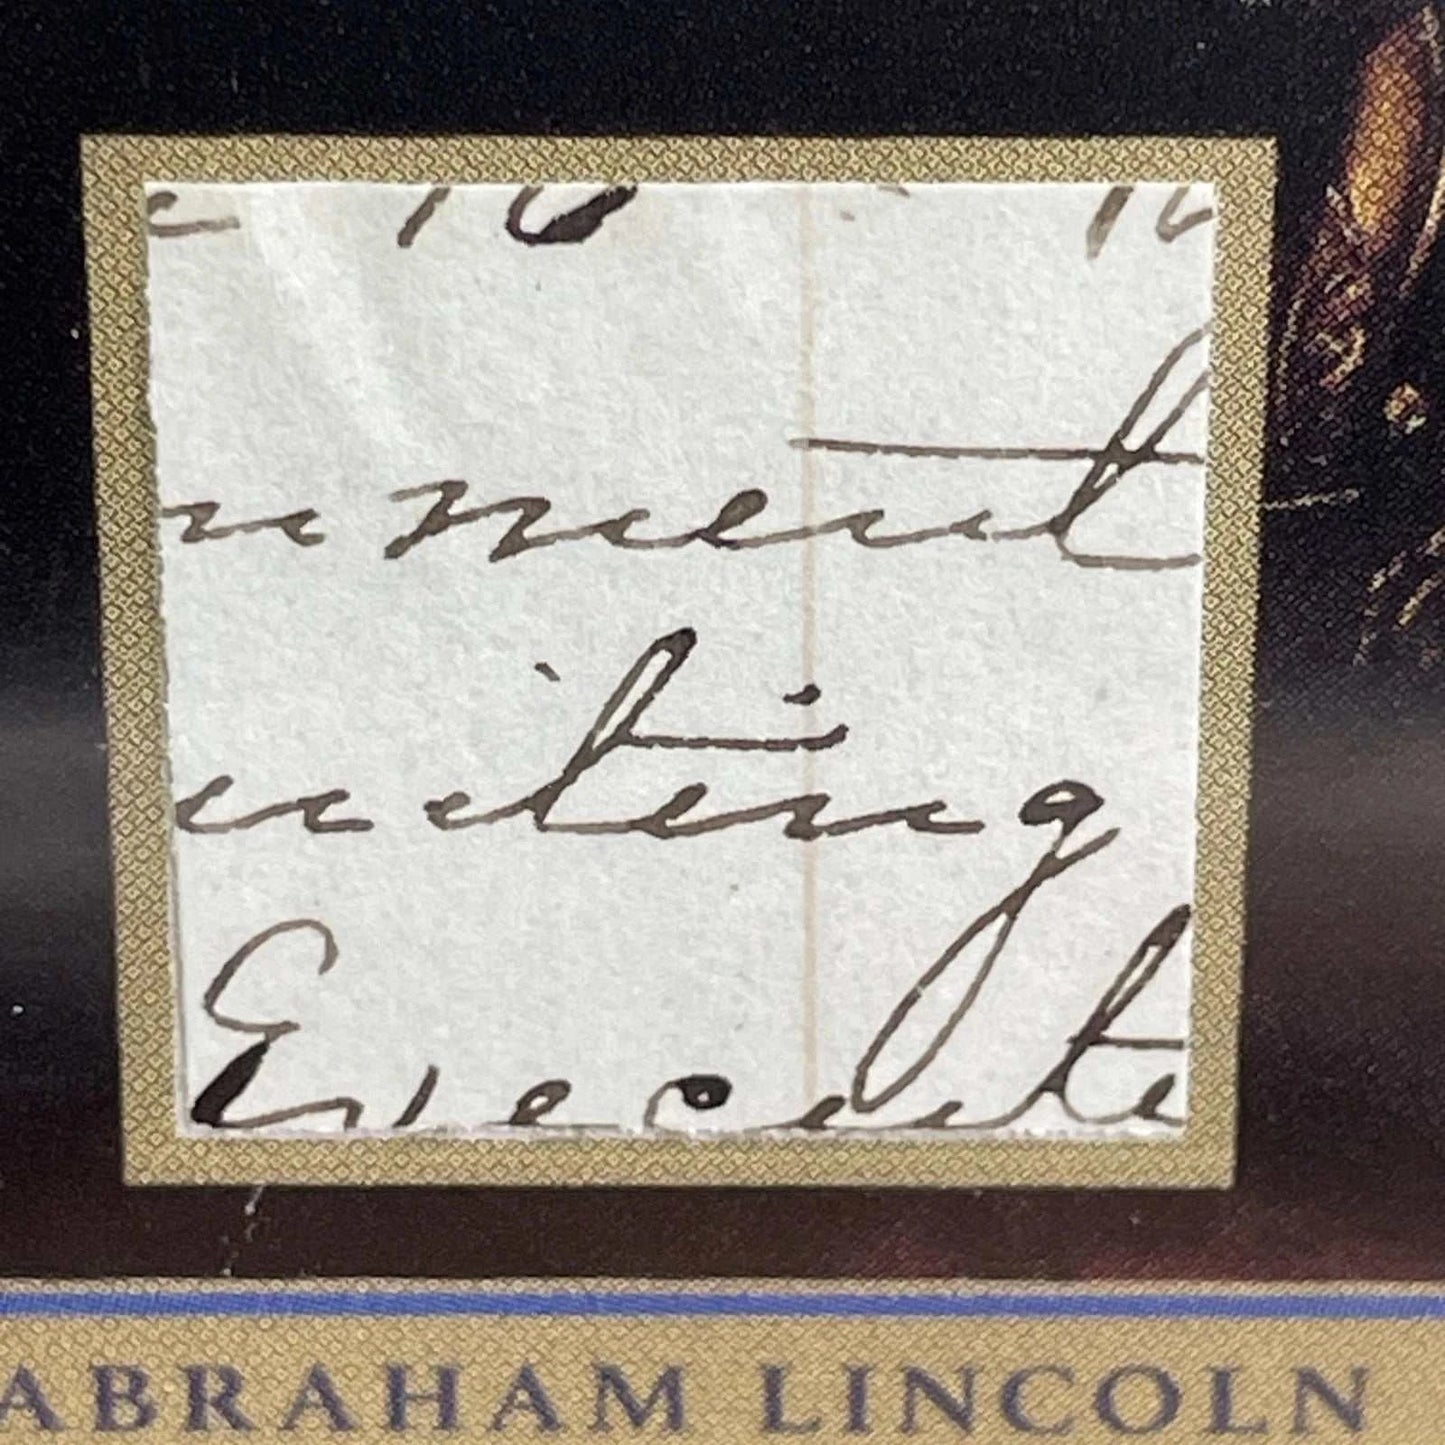 nment
uiting
Execute
ABRAHAM LINCOLN